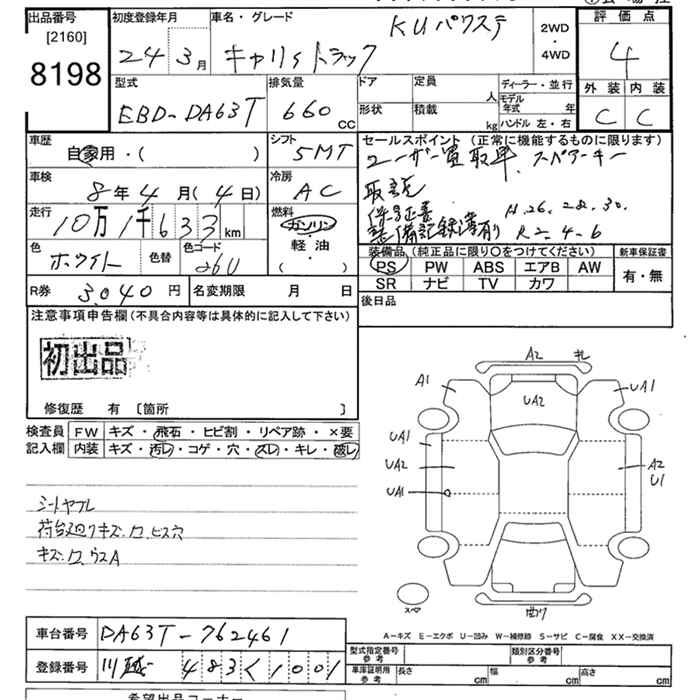 出品番号
[2160]
8198
初度登録年月
24 3月
車名・グレード
KUパワステ
キャリィトラック
2WD
・
4WD
評価点
4
外装 内装
C C
型式
EBD-DA63T
排気量
660
cc
ドア
形状
定員
人
積載
kg
ディーラー・並行
モデル年式 年
ハンドル 左・右
車歴
自家用・( )
シフト
5MT
車検
8年4月(4日)
冷房
AC
走行
10万1千633 km
燃料
ガソリン
・
軽油
・
( )
色
ホワイト
色替
色コード
26U
R券 3,040円
名変期限 月 日
セールスポイント (正常に機能するものに限ります)
ユーザー買取車、スペアーキー
取説
保証書
整備記録簿有り H.26.28.30.
R2.4.6
装備品(純正品に限り〇をつけてください)
PS PW ABS エアB AW
SR ナビ TV カワ
新車保証書
有・無
後日品
注意事項申告欄(不具合内容等は具体的に記入して下さい)
初出品
修復歴 有 [箇所 ]
検査員
記入欄
FW キズ・飛石・ヒビ割・リペア跡・×要
内装 キズ・汚レ・コゲ・穴・スレ・キレ・破レ
シートヤブレ
荷台廻りキズ、ワ、ビス穴
キズ、ワ、ウスA
A2 キレ
A1
UA2
UA1
UA1
UA2
UA1
A2
U1
スペア
曲り
A-キズ E-エクボ U-凹み W-補修跡 S-サビ C-腐食 XX-交換済
車台番号 DA63T-762461
登録番号 川越 483く1001
型式指定番号
参考
類別区分番号
参考
車庫証明用
参考
長さ cm 幅 cm 高さ cm
希望出品コーナー